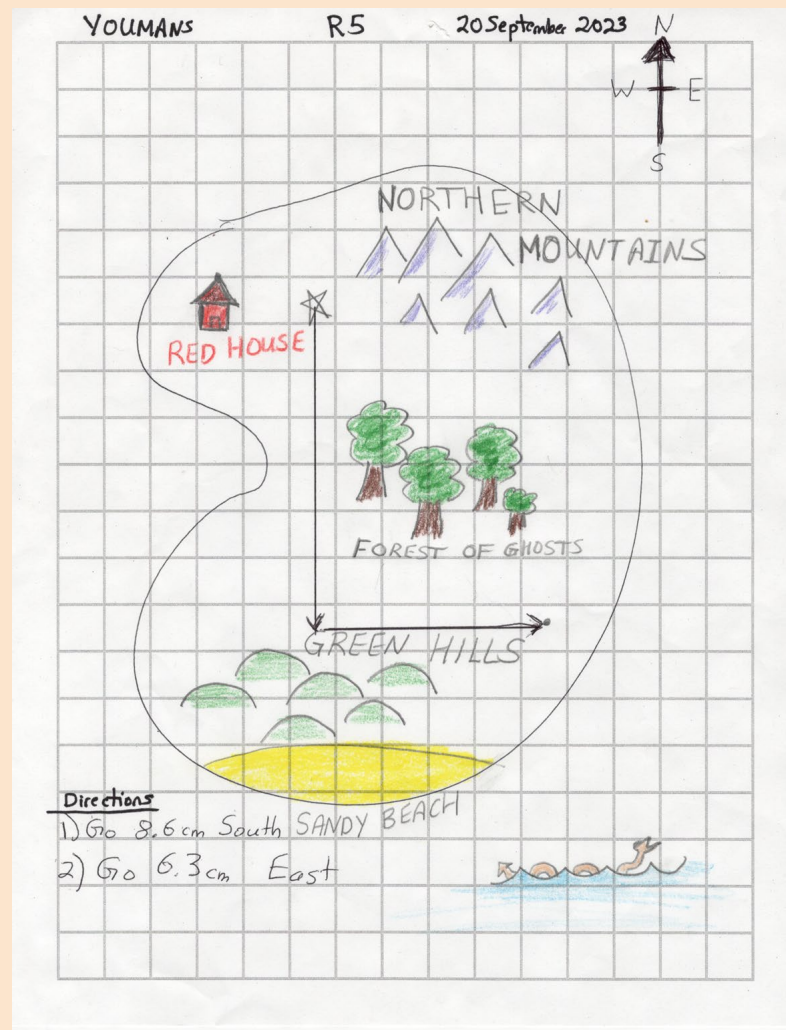 YOUMANS R5 20 September 2023
N
W E
S
NORTHERN
MOUNTAINS
RED HOUSE
FOREST OF GHOSTS
GREEN HILLS
Directions
1) Go 8.6cm South
SANDY BEACH
2) Go 6.3cm East